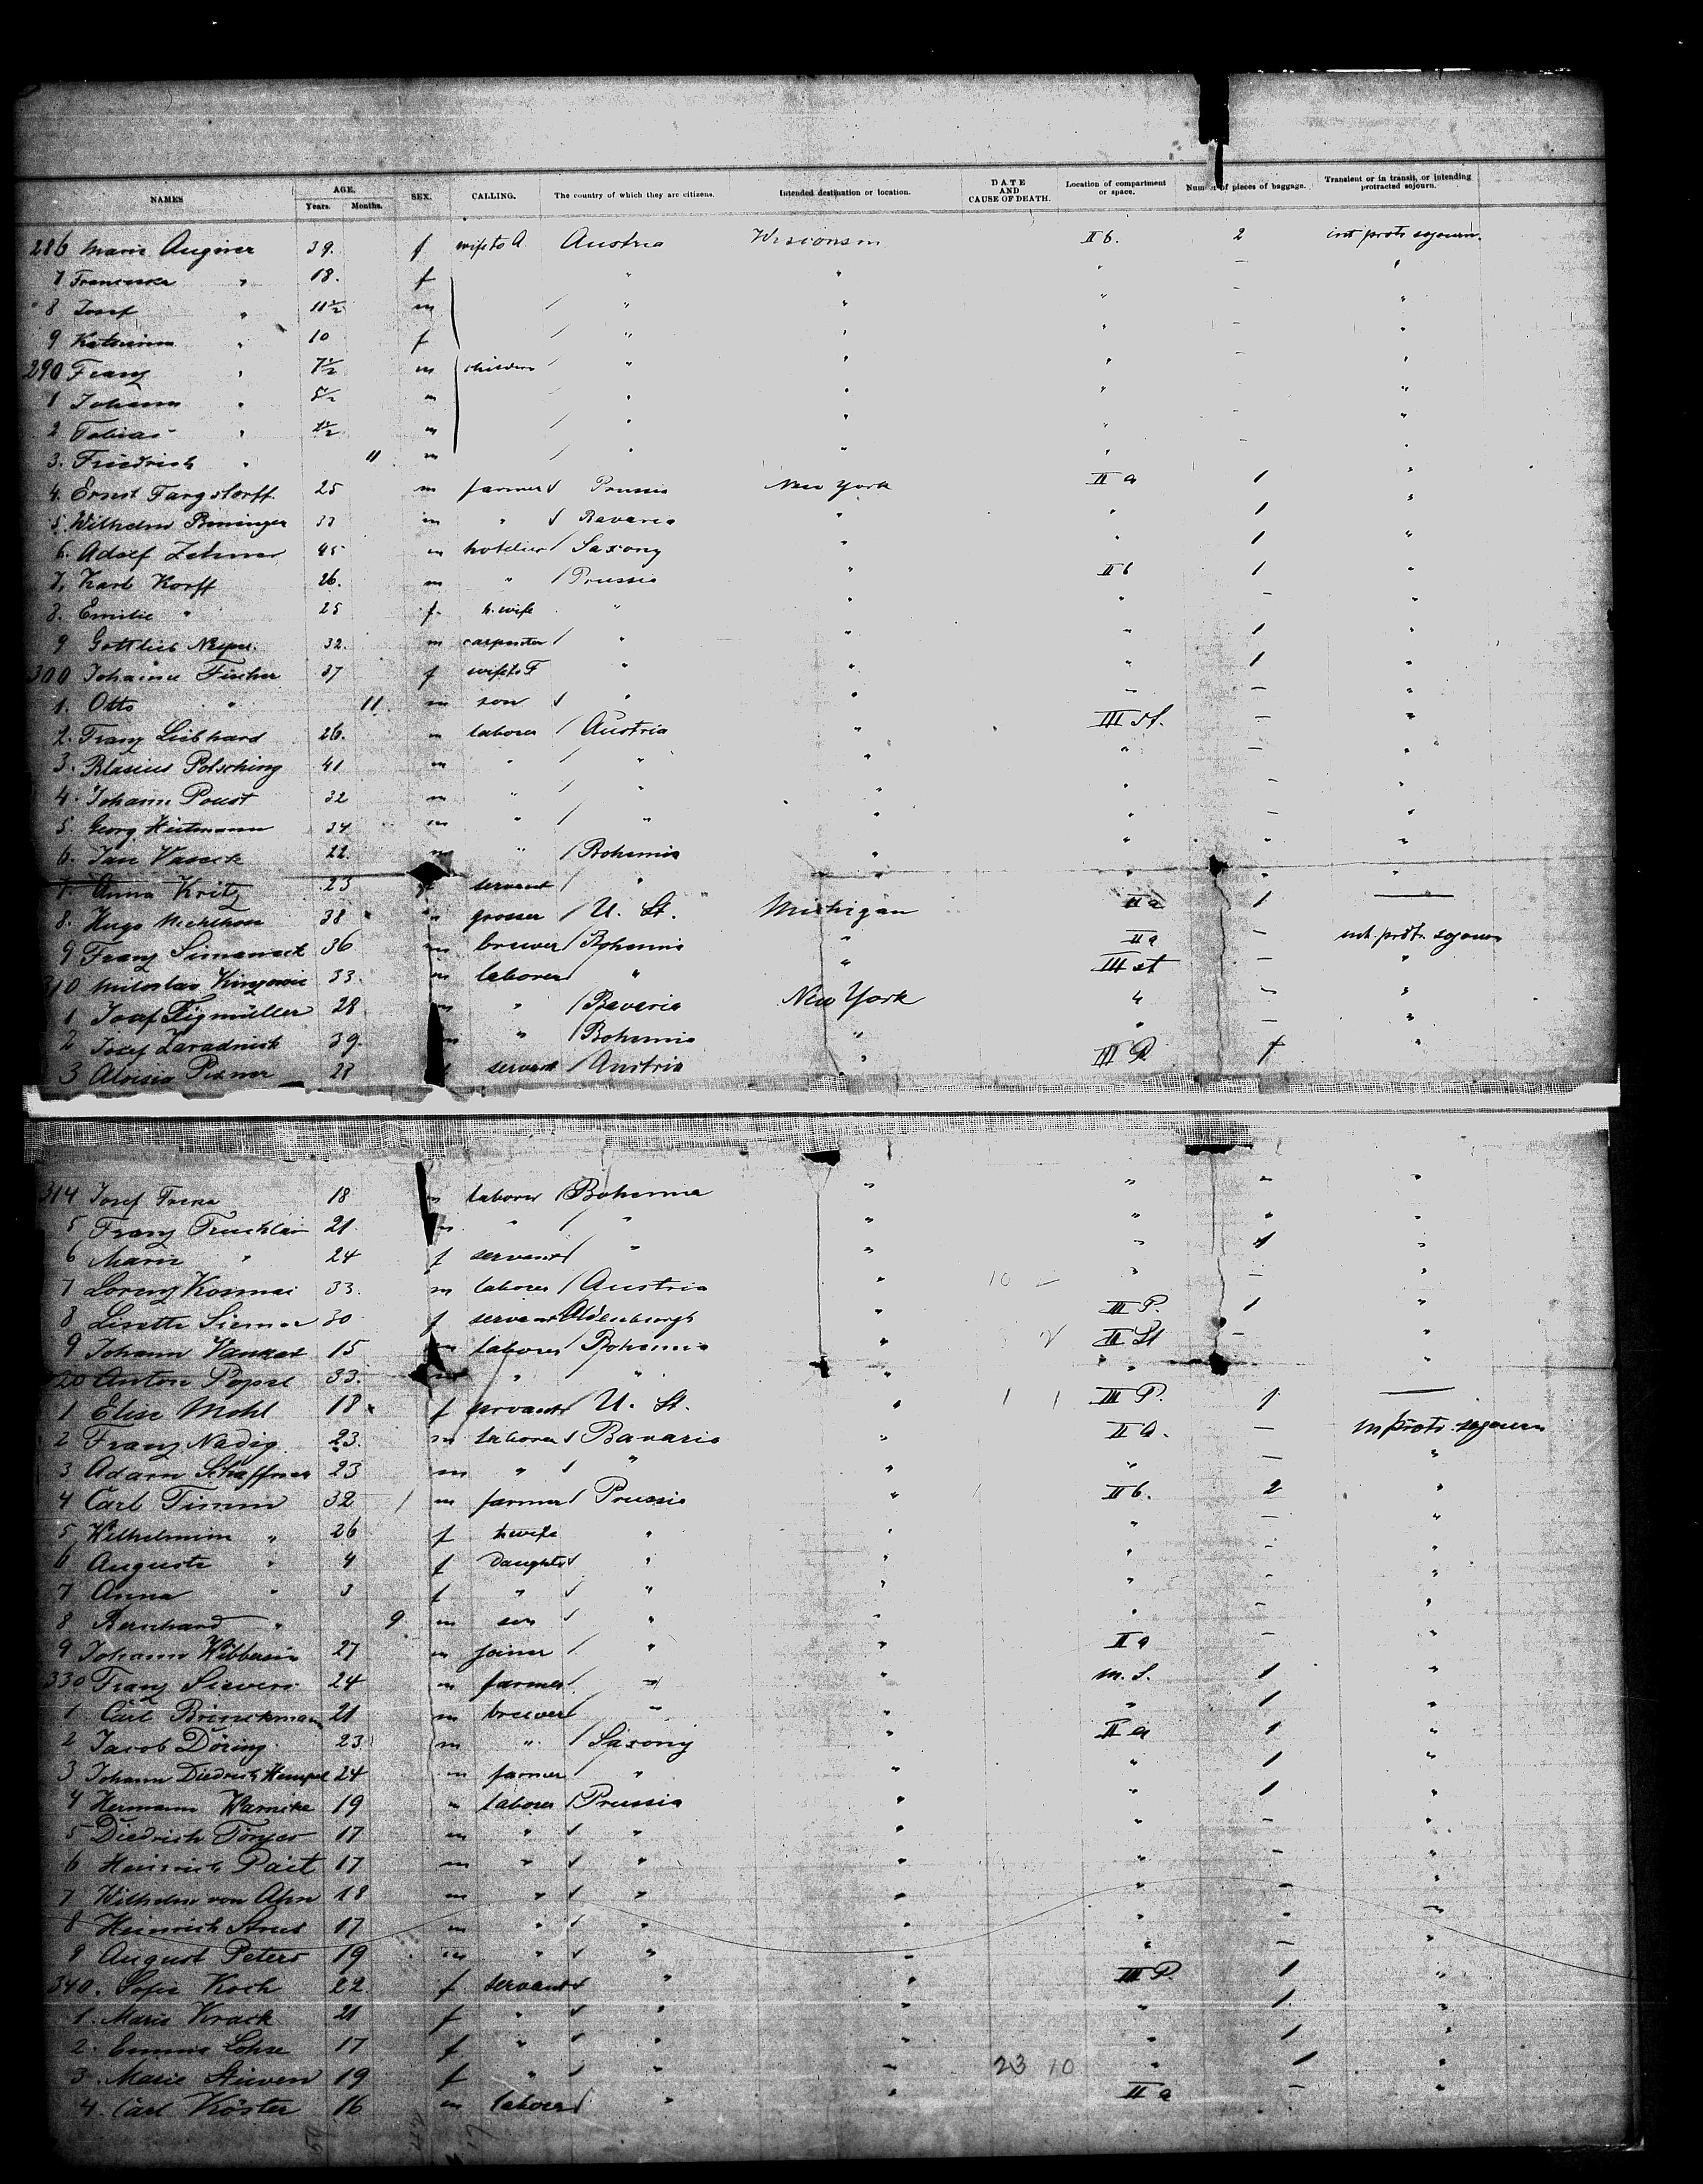 NAMES AGE. Years. Months. SEX. CALLING. The country of which they are citizens. Intended destination or location. DATE AND CAUSE OF DEATH. Location of compartment or space. Number of pieces of baggage. Transient or in transit, or intending protracted sojourn.
286 Marie 39. f wife to A Austria Wisconsin II b. 2 int protr sojourn.
7 Franciska " 18. f " " " - "
8 Josef " 11½ m " " " - "
9 Katharina " 10 f " " " - "
290 Franz " 7½ m children " " " - "
1 Johann " m " " " - "
2 Tobias " m " " " - "
3. Friedrich " 11 m " " " - "
4. Ernst 25 m farmer Prussia New York II a 1 "
5. Wilhelm m " Bavaria " " 1 "
6. Adolf 45 m hotelier Saxony " " 1 "
7. Karl Korff 26. m " Prussia " II b 1 "
8. Emilie " 25 f. h. wife " " " - "
9 Gottlieb 32. m carpenter " " " 1 "
300 Johanne Fischer 37 f wife to F " " " 1 "
1. Otto " 11 m son " " " - "
2. Franz Liebhard 26. m laborer Austria " III st. - "
3. Blasius Potsching 41 m " " " " - "
4. Johann Poust 32 m " " " " - "
5. Georg 34 m " " " " - "
6. 22. m " Bohemia " " " "
7. Anna Kritz 23 f servant " " " " "
8. Hugo 38 m grosser U. St. Michigan II a 1 —
9 Franz 36 m brewer Bohemia " II a - int. protr. sojourn
310 Miloslav 33. m laborer " " III st - "
1 Josef Figmüller 28 m " Bavaria New York " - "
2 Josef 39. m " Bohemia " " - "
3 Aloisia 28 f servant Austria " III P. 1 "
314 Josef 18 m laborer Bohemia " " " "
5 Franz 21. m " " " " " "
6 Marie " 24 f servant " " " 1 "
7 Lorenz 33. m laborer Austria " 10 " - "
8 Lisette 30 f servant Oldenburgh " III P. 1 "
9 Johann 15 m laborer Bohemia " II St - "
320 Anton 33. m " " " " "
1 Elise Mohl 18 f servant U. St. " III P. 1 —
2 Franz Nadig 23. m laborer Bavaria " II a. — in protr. sojourn
3 Adam Schaffner 23 m " " " " — "
4 Carl Timm 32 m farmer Prussia " II b. 2 "
5 Wilhelmine " 26 f h wife " " " — "
6 Auguste " 4 f daughter " " " - "
7 Anna " 3 f " " " " - "
8 Bernhard " 9 m son " " " - "
9 Johann 27 m joiner " " II a - "
330 Franz Sievers 24 m farmer " " m. S. 1 "
1 Carl Brinckmann 21 m brewer " " " 1 "
2 Jacob Döring 23 m " Saxony " II a 1 "
3 Johann Diedrich Hempel 24 m farmer " " " 1 "
4 Hermann Warneke 19 m laborer Prussia " " 1 "
5 Diedrich Tönjes 17 m " " " " - "
6 Heinrich 17 m " " " " - "
7 Wilhelm von 18 m " " " " - "
8 Heinrich 17 m " " " " - "
9 August Peters 19 m " " " " - "
340. Sofie Koch 22. f servant " " III P. 1 "
1. Marie Krack 21 f " " " " 1 "
2. Emma Lohse 17 f " " " " 1 "
3. Marie Stüven 19 f " " " 23 10 " 1 "
4. Carl Köster 16 m laborer " " II a - "